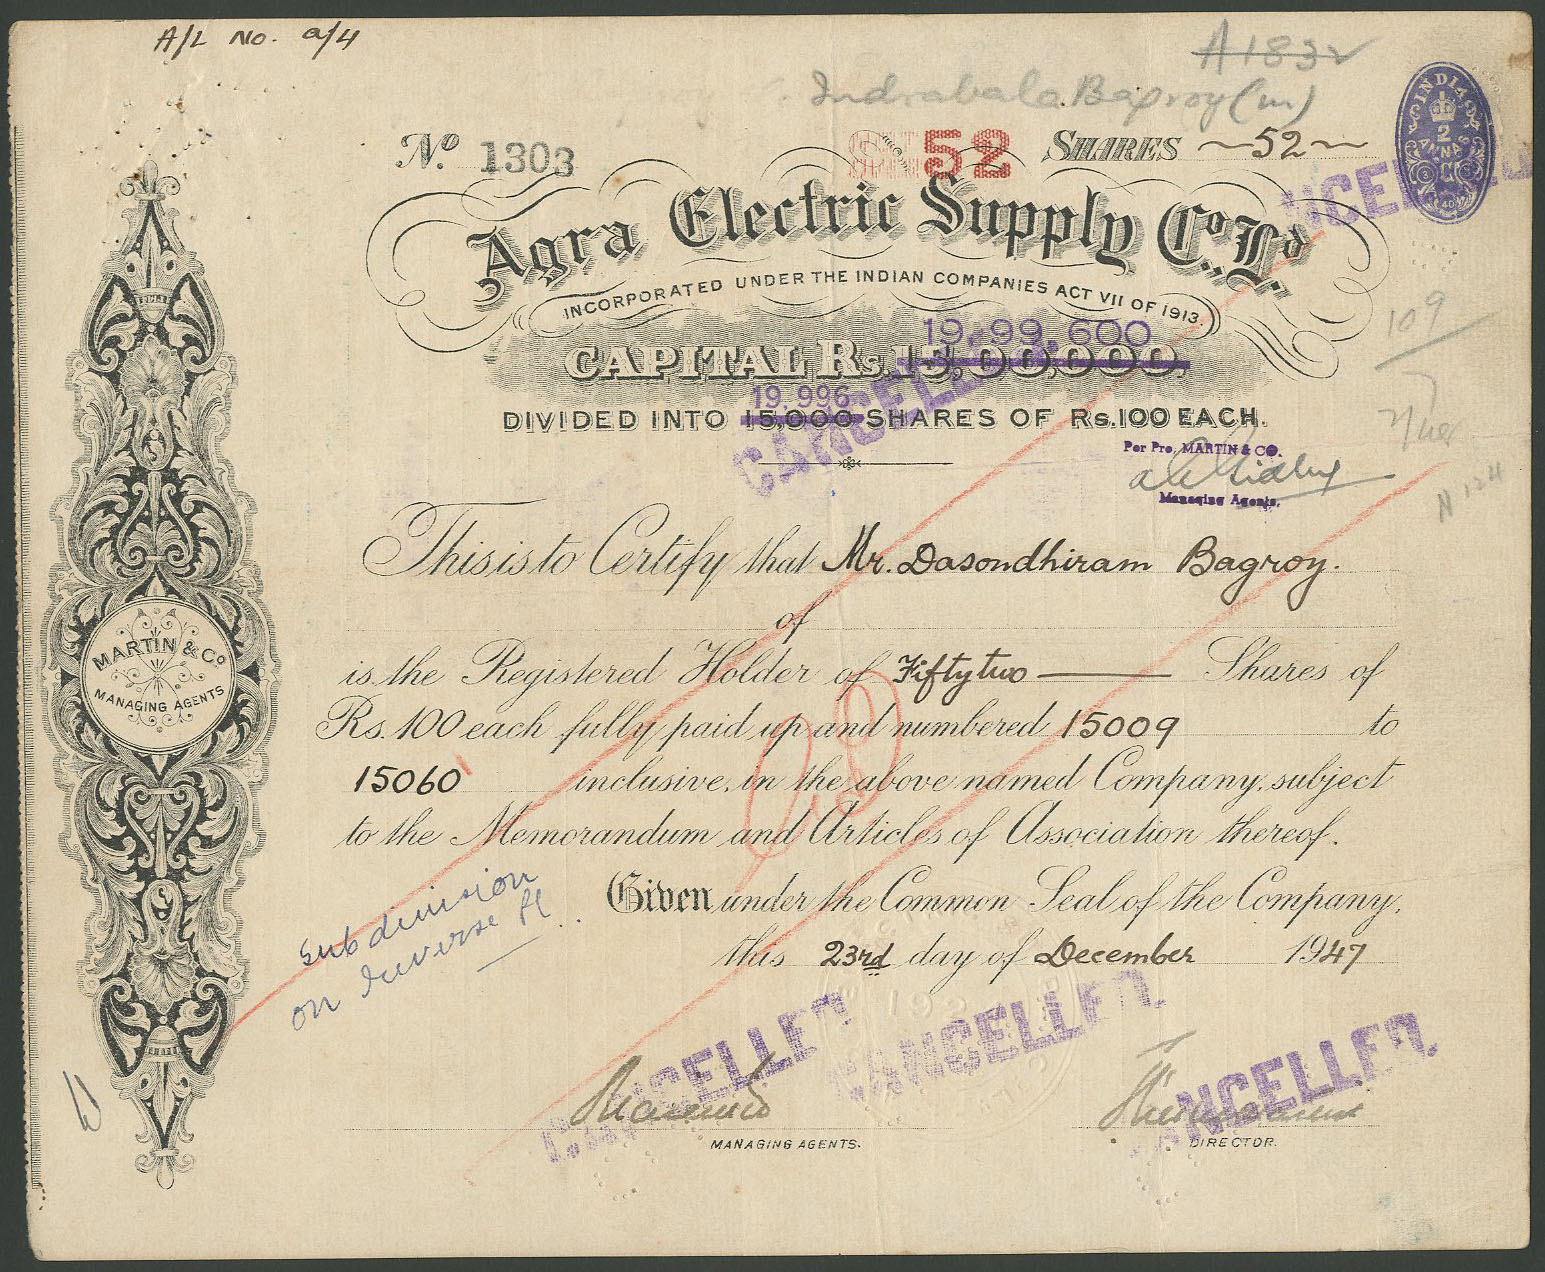 A/L No. a/4
A 183
Indrabala Bagroy (m)
INDIA
2
ANNAS
40
No 1303
52 SHARES ~52~
CANCELLED
Agra Electric Supply Co., Ld.
INCORPORATED UNDER THE INDIAN COMPANIES ACT VII OF 1913
19,99,600
CAPITAL Rs. 15,00,000,
19,996
DIVIDED INTO 15,000 SHARES OF Rs. 100 EACH.
CANCELLED
109
Per Pro. MARTIN & CO.
Managing Agents.
N 124
This is to Certify that Mr. Dasondhiram Bagroy.
of
is the Registered Holder of Fiftytwo Shares of
Rs. 100 each fully paid up and numbered 15009 to
15060 inclusive, in the above named Company, subject
to the Memorandum and Articles of Association thereof.
MARTIN & Co
MANAGING AGENTS
Given under the Common Seal of the Company,
this 23rd day of December 1947
subdivision
on reverse
CANCELLED.
CANCELLED.
CANCELLED.
MANAGING AGENTS.
DIRECTOR.